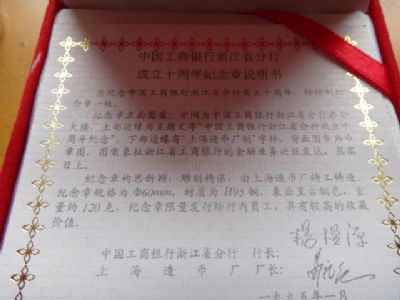 中国工商银行浙江省分行
成立十周年纪念章说明书
为纪念中国工商银行浙江省分行成立十周年，特铸制纪
念章一枚。
纪念章正面图案：中间为中国工商银行浙江省分行办公
大楼，上部边缘为主题文字“中国工商银行浙江省分行成立十
周年纪念”，下部边缘有“上海造币厂制”字样，背面图案为
章图，图案象征浙江省工商银行的金融业务兴旺发达，蒸蒸
日上。
纪念章构思新颖，雕刻精湛，由上海造币厂精工铸造，
纪念章规格为Φ60mm，材质为H05铜，表面呈古铜色，重
量约120克，纪念章限量发行给行内员工，具有较高的收藏
价值。
中国工商银行浙江省分行 行长：
上海造币厂 厂长：
一九九五年一月